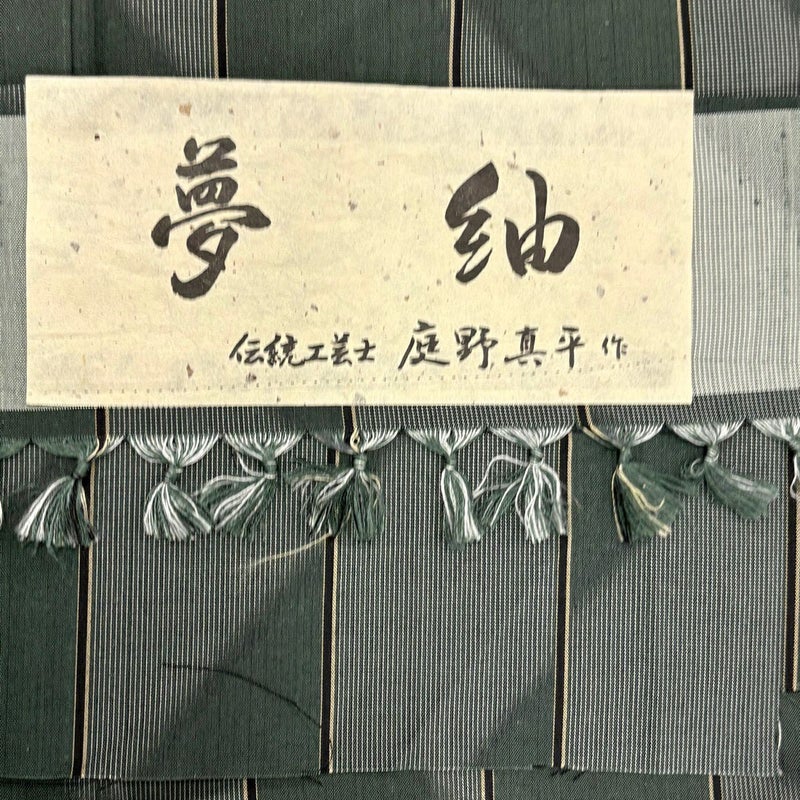 夢紬
伝統工芸士 庭野真平作